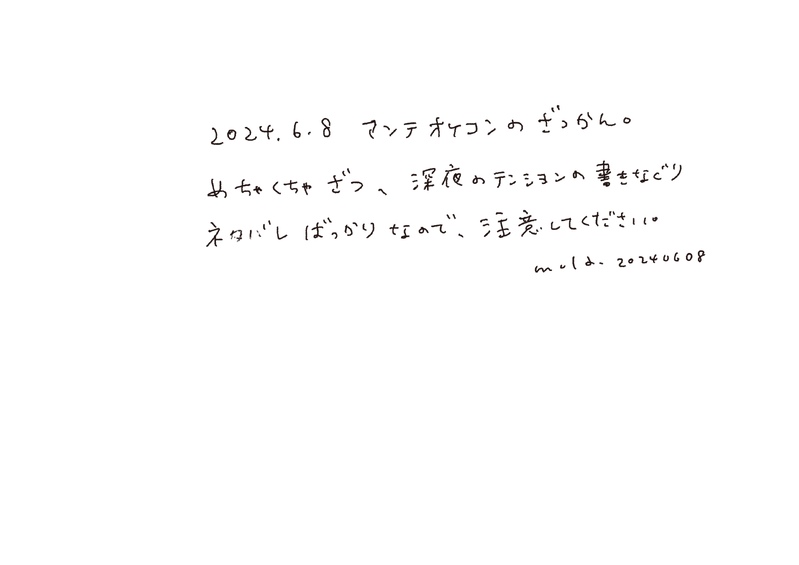 2024.6.8 アンテオケコンのざっかん。
めちゃくちゃざつ、深夜のテンションの書きなぐり
ネタバレばっかりなので、注意してください。
20240608